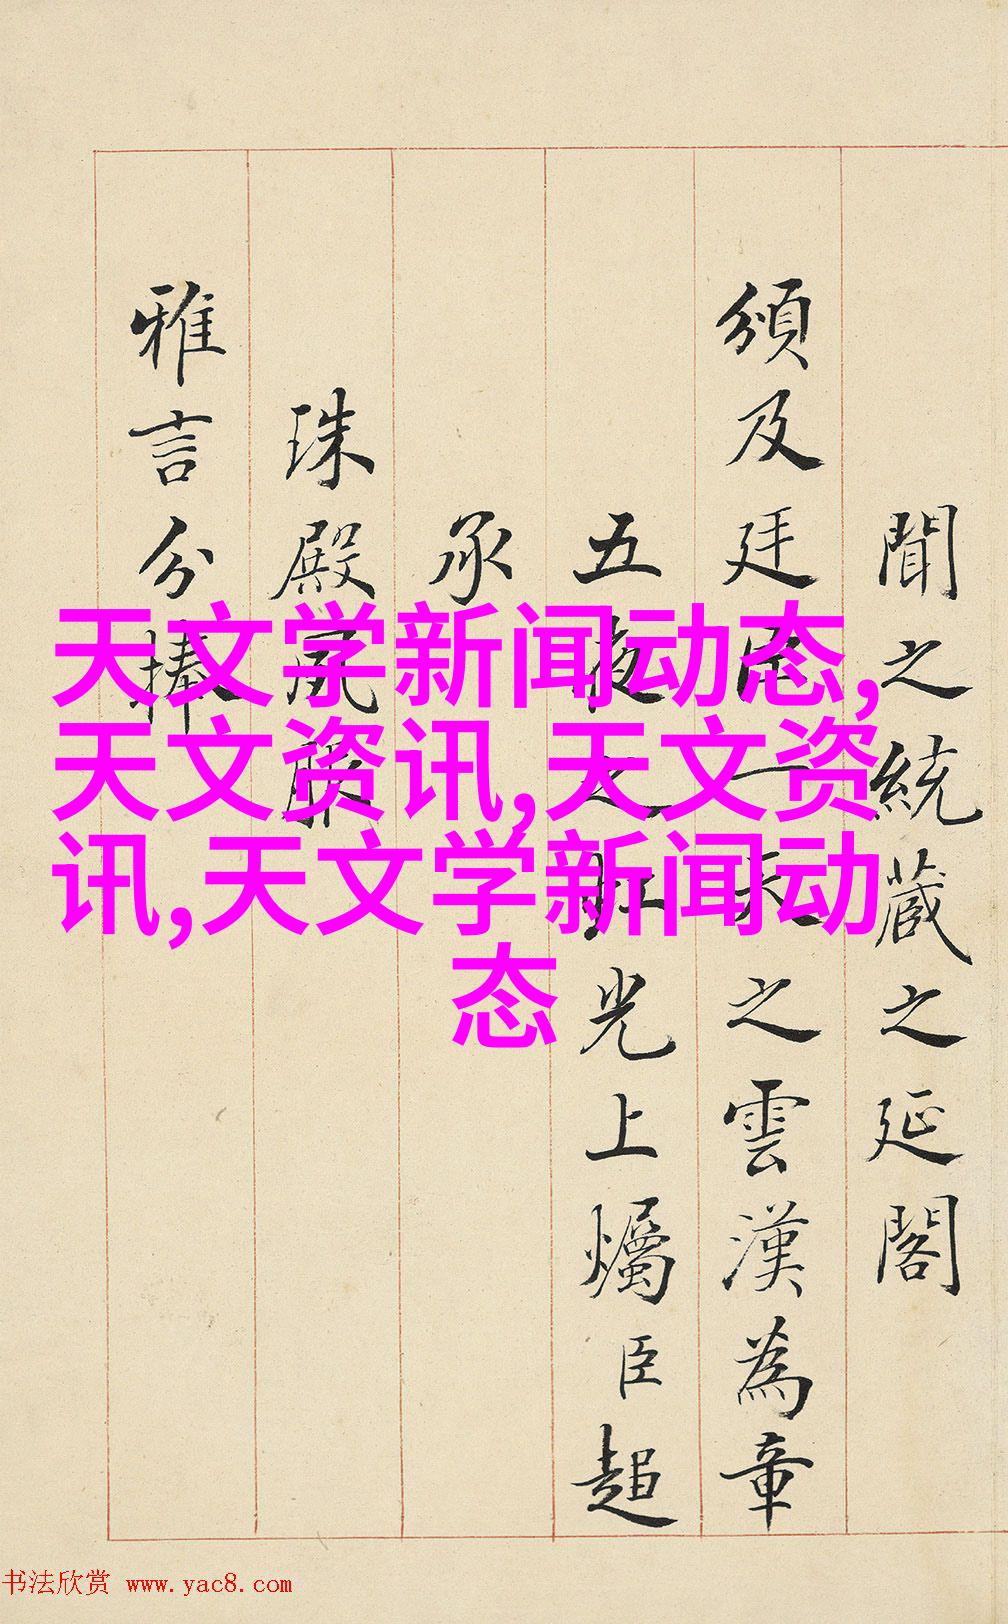 聞之統蔵之延閣
頒及廷臣一天之雲漢為章
五夜之虹光上爥臣趨
承
珠殿
雅言分捧
天文学新闻动态,
天文资讯,天文资
讯,天文学新闻动
态
书法欣赏 www.yac8.com